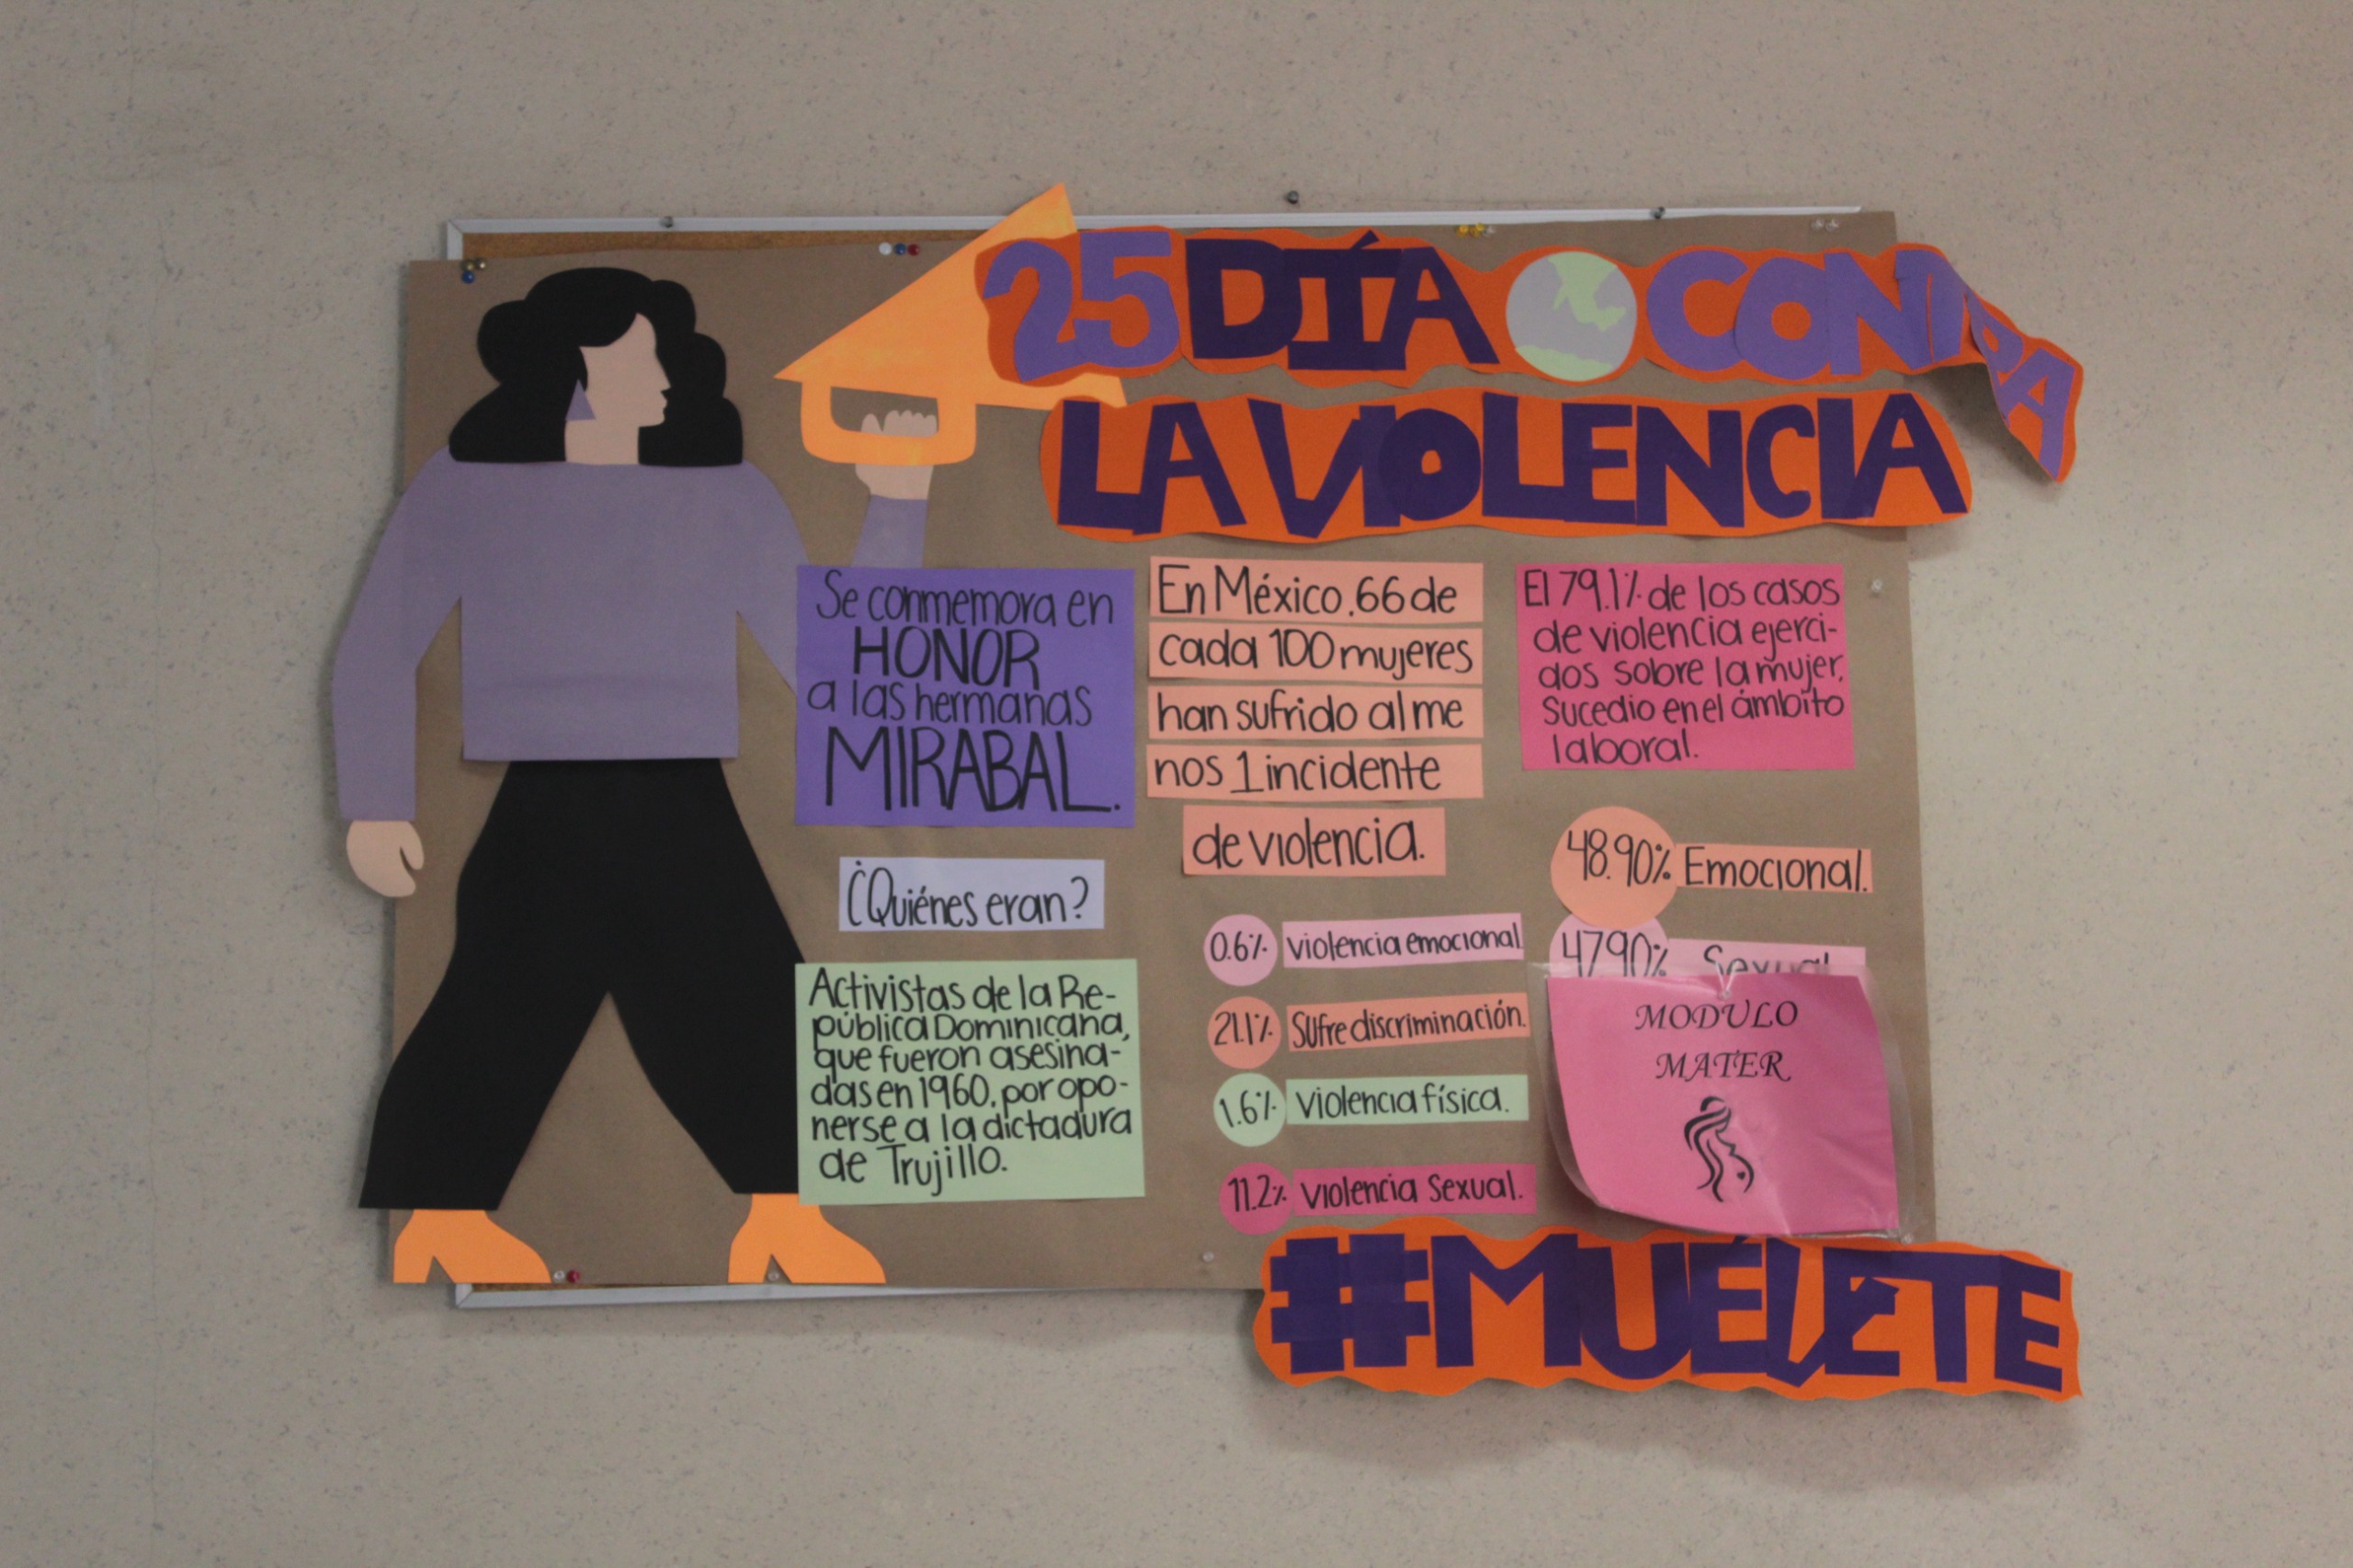 25 DÍA CONTRA
LA VIOLENCIA
Se conmemora en
HONOR
a las hermanas
MIRABAL.
¿Quiénes eran?
Activistas de la Re-
pública Dominicana,
que fueron asesina-
das en 1960, por opo-
nerse a la dictadura
de Trujillo.
En México, 66 de
cada 100 mujeres
han sufrido al me
nos 1 incidente
de violencia.
0.6% violencia emocional.
21.1% Sufre discriminación.
1.6% violencia física.
11.2% violencia sexual.
El 79.1% de los casos
de violencia ejerci-
dos sobre la mujer,
sucedio en el ámbito
laboral.
48.90% Emocional.
47.90% Sexual
MODULO
MATER
#MUÉVETE